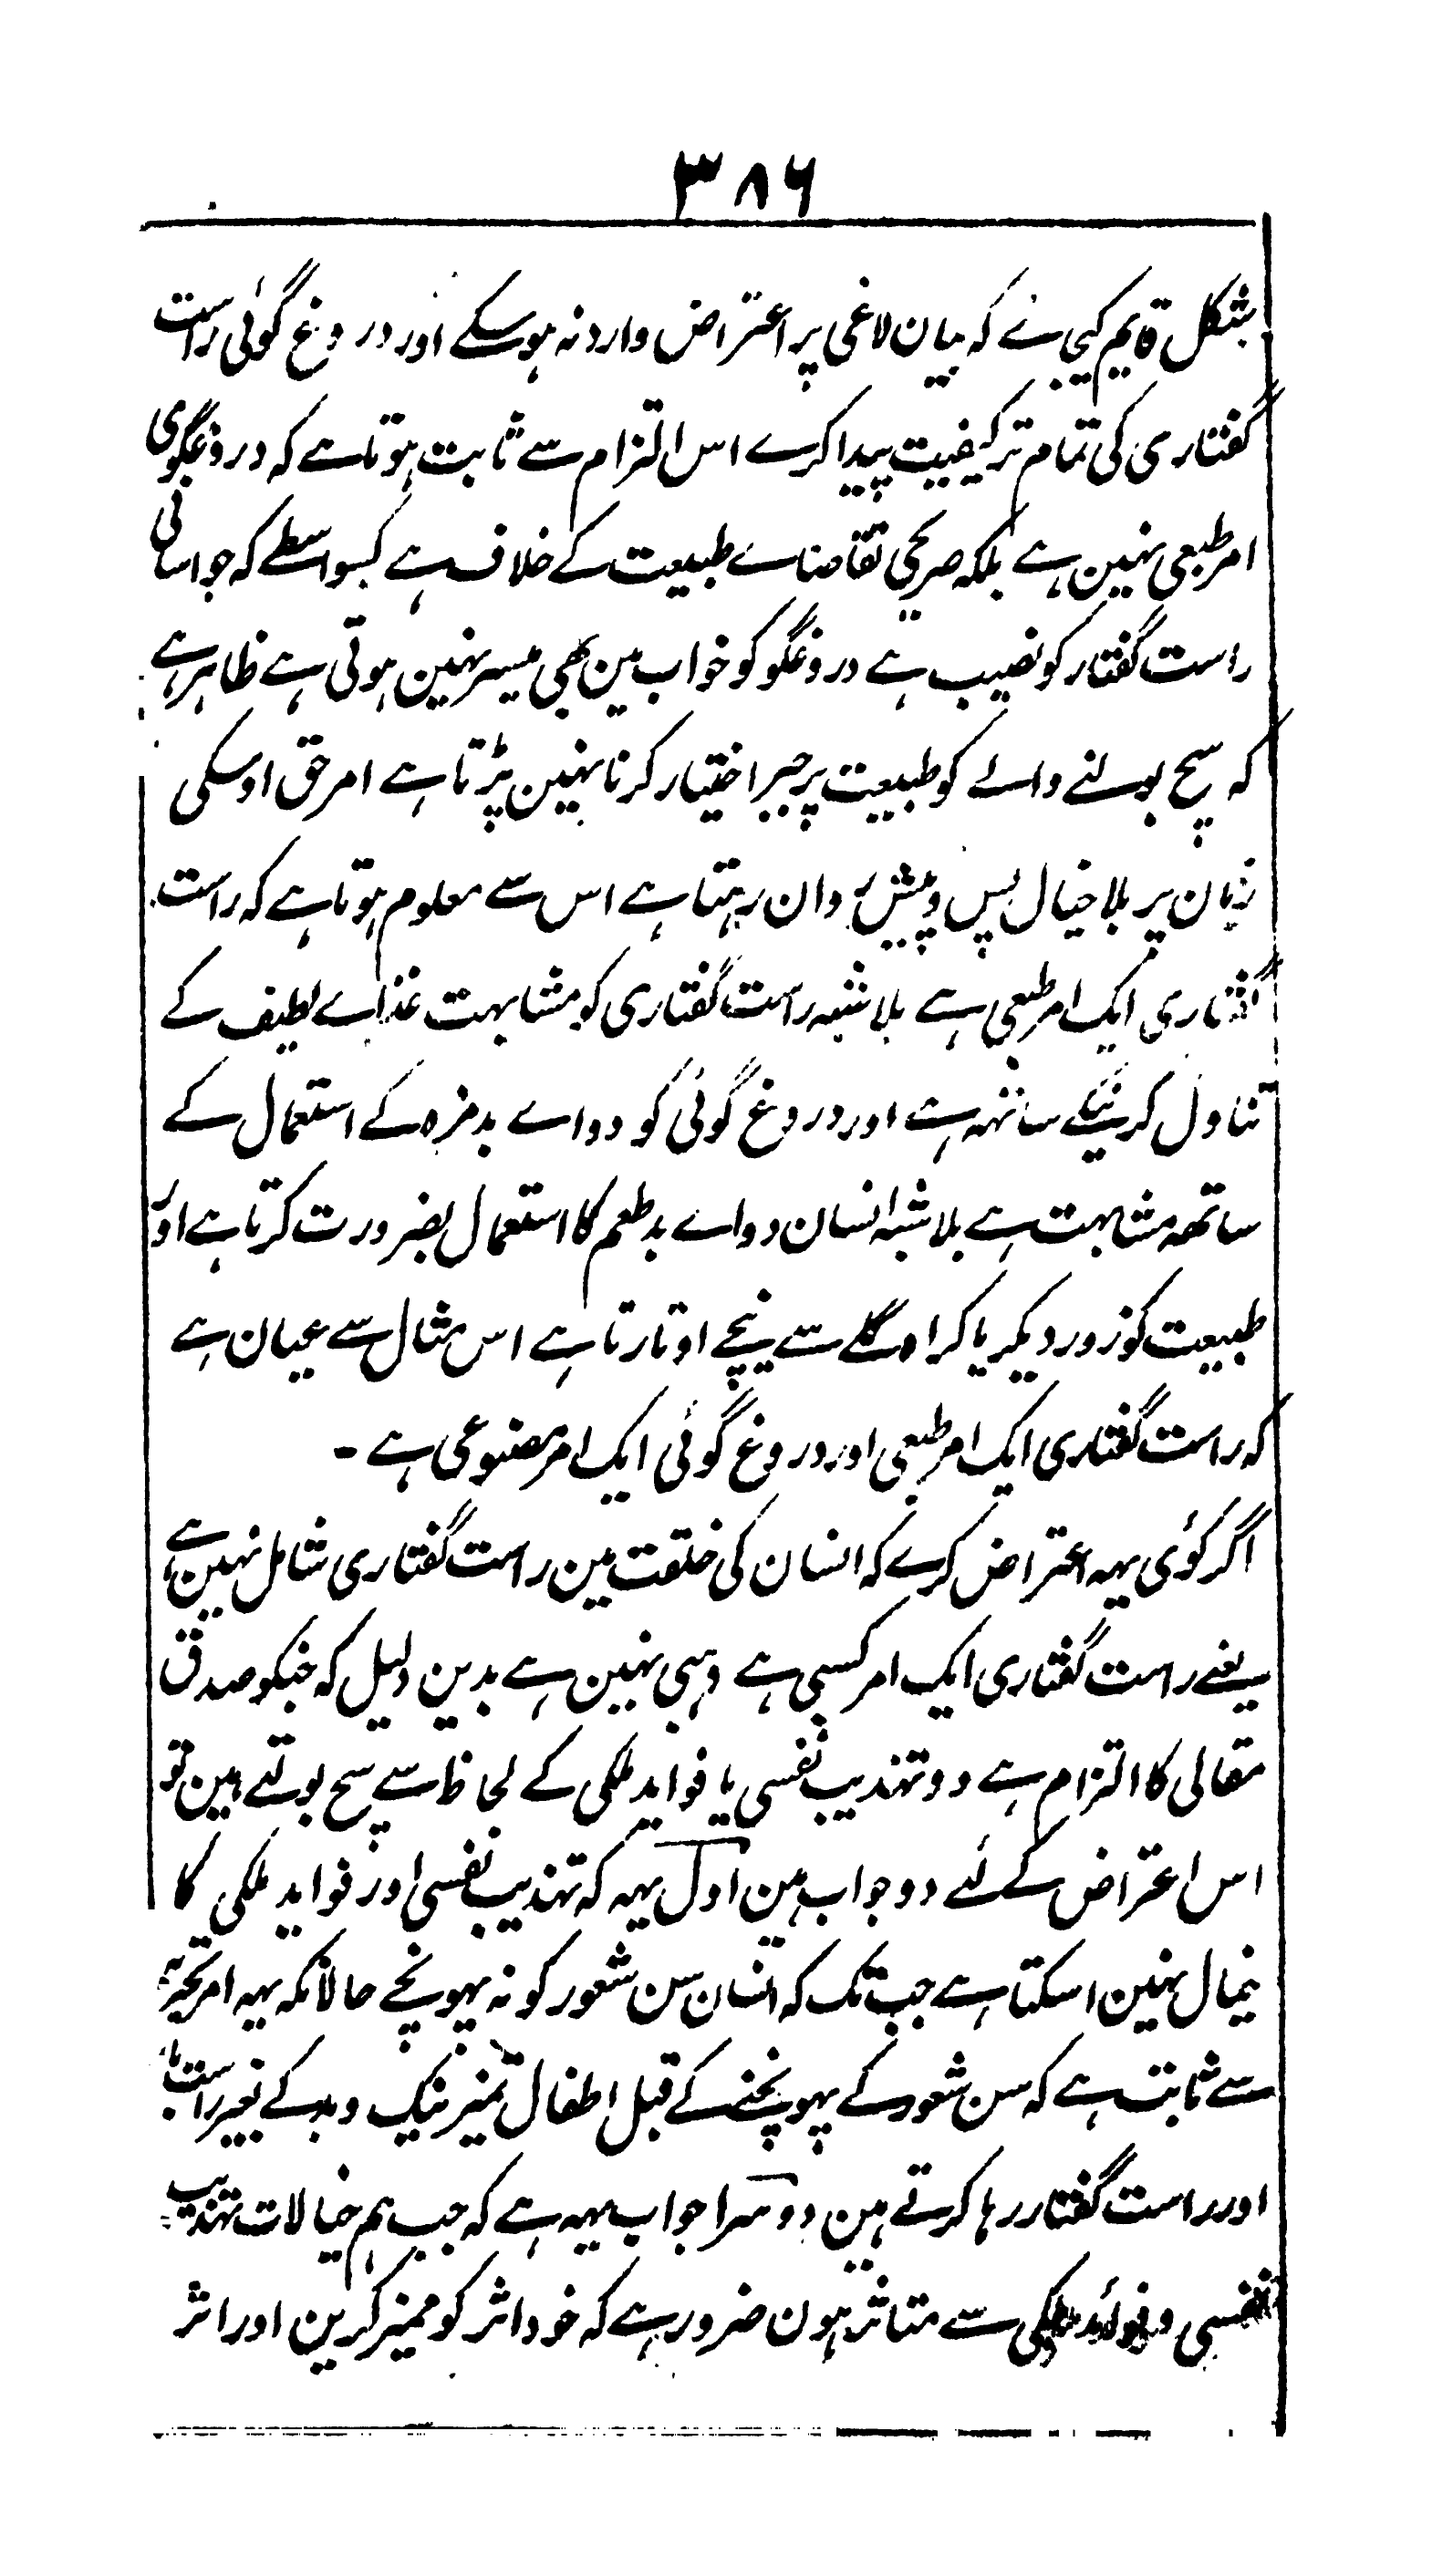 ۳۸۶
بشکل قایم کیجے کہ بیان لاغی پر اعتراض وارد نہ ہوسکے اور دروغ گوئی راست
گفتاری کی تمام تر کیفیت پیدا کرے اس التزام سے ثابت ہوتا ہے کہ دروغگوی
امر طبعی نہین ہے بلکہ صریحی تقاضاے طبیعت کے خلاف ہے کسواسطے کہ جو اسانی
راست گفتار کو نصیب ہے دروغگو کو خواب مین بھی میسر نہین ہوتی ہے ظاہر ہے
کہ سچ بولنے والے کو طبیعت پر جبر اختیار کرنا نہین پڑتا ہے امر حق اوسکی
زبان پر بلا خیال پس وپیش روان رہتا ہے اس سے معلوم ہوتا ہے کہ راست
گفتاری ایک امر طبعی ہے بلاشبہ راست گفتاری کو مشابہت غذاے لطیف کے
تناول کرنیکے ساتھہ ہے اور دروغ گوئی کو دواے بدمزہ کے استعمال کے
ساتھہ مشابہت ہے بلاشبہ انسان دواے بدطعم کا استعمال بضرورت کرتا ہے اور
طبیعت کو زور دیکر یا کراہ گلے سے نیچے اوتارتا ہے اس مثال سے عیان ہے
کہ راست گفتاری ایک امر طبعی اور دروغ گوئی ایک امر مصنوعی ہے ۔
اگر کوئی یہہ اعتراض کرے کہ انسان کی خلقت مین راست گفتاری شامل نہین ہے
یعنے راست گفتاری ایک امر کسبی ہے وہبی نہین ہے بدین دلیل کہ جنکو صدق
مقالی کا التزام ہے وو تہذیب نفسی یا فواید ملکی کے لحاظ سے سچ بولتے ہین تو
اس اعتراض کے لئے دو جواب ہین اول یہہ کہ تہذیب نفسی اور فواید ملکی کا
خیال نہین اسکتا ہے جب تک کہ انسان سن شعور کو نہ پہونچے حالانکہ یہہ امر تجربہ
سے ثابت ہے کہ سن شعور کے پہونچنے کے قبل اطفال تمیز نیک و بد کے بغیر راست باز
اور راست گفتار رہا کرتے ہین دوسرا جواب یہہ ہے کہ جب ہم خیالات تہذیب
نفسی و فوائد ملکی سے متاثر ہون ضرور ہے کہ خود اثر کو ممیز کرین اور اثر